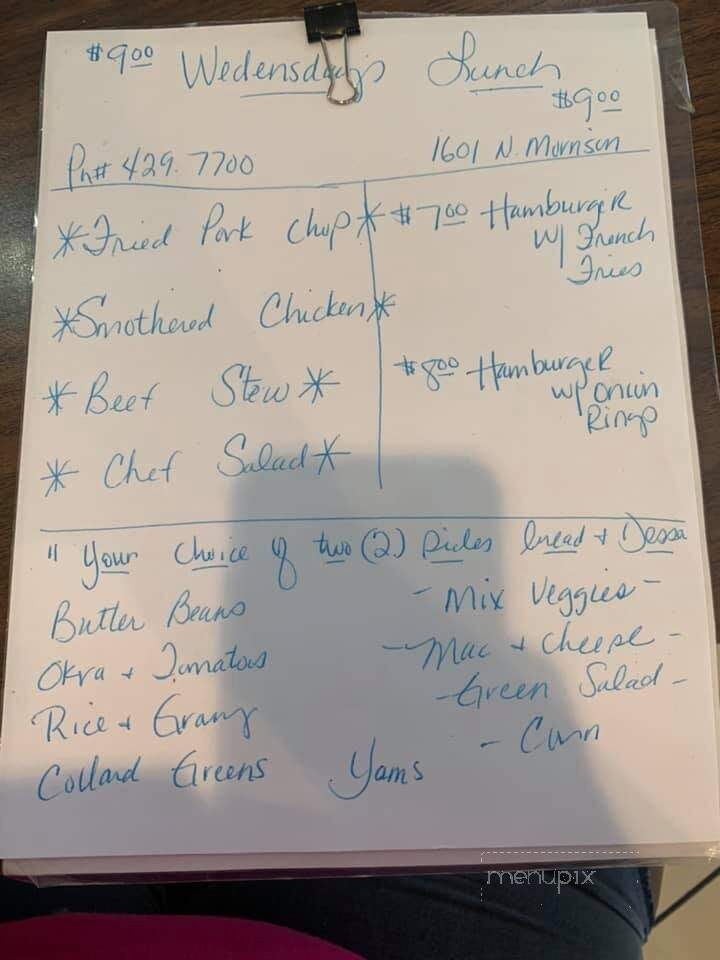 $9.00 Wedensday's Lunch
$9.00
Ph# 429.7700
1601 N. Morrison
*Fried Pork Chop*
*Smothered Chicken*
*Beef Stew*
*Chef Salad*
$7.00 HamburgeR
w/ French
Fries
$8.00 HamburgeR
w/ Onion
Rings
"Your Choice of two (2) Sides bread + Dessa
Butter Beans
Okra + Tomatoes
Rice + Gravy
Collard Greens
Yams
- Mix Veggies -
- Mac + Cheese -
- Green Salad -
- Corn
menupix